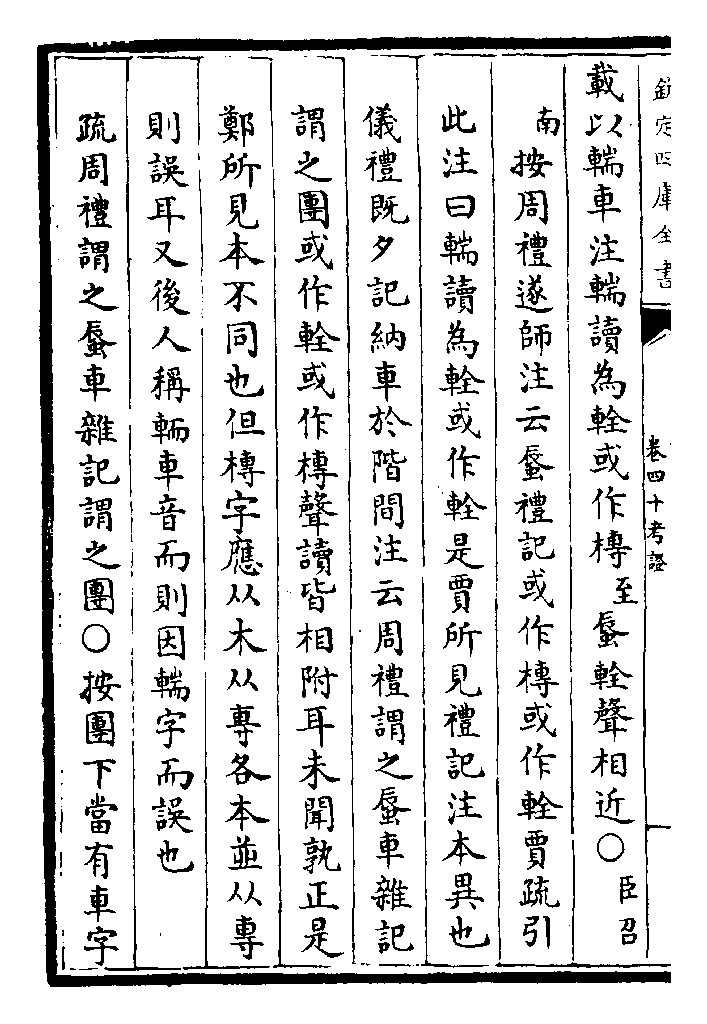 欽定四庫全書
卷四十考證
載以輲車注輲讀為輇或作槫至蜃輇聲相近○臣召
南按周禮遂師注云蜃禮記或作槫或作輇賈疏引
此注曰輲讀為輇或作輇是賈所見禮記注本異也
儀禮既夕記納車於階間注云周禮謂之蜃車雜記
謂之團或作輇或作槫聲讀皆相附耳未聞孰正是
鄭所見本不同也但槫字應从木从專各本並从專
則誤耳又後人稱輀車音而則因輲字而誤也
疏周禮謂之蜃車雜記謂之團○按團下當有車字